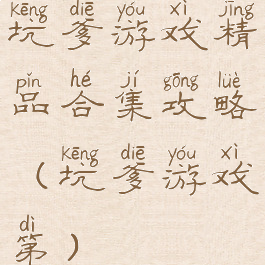 kēng diē yóu xì jīng
坑爹游戏精
pǐn hé jí gōng lüè
品合集攻略
kēng diē yóu xì
（坑爹游戏
dì
第）